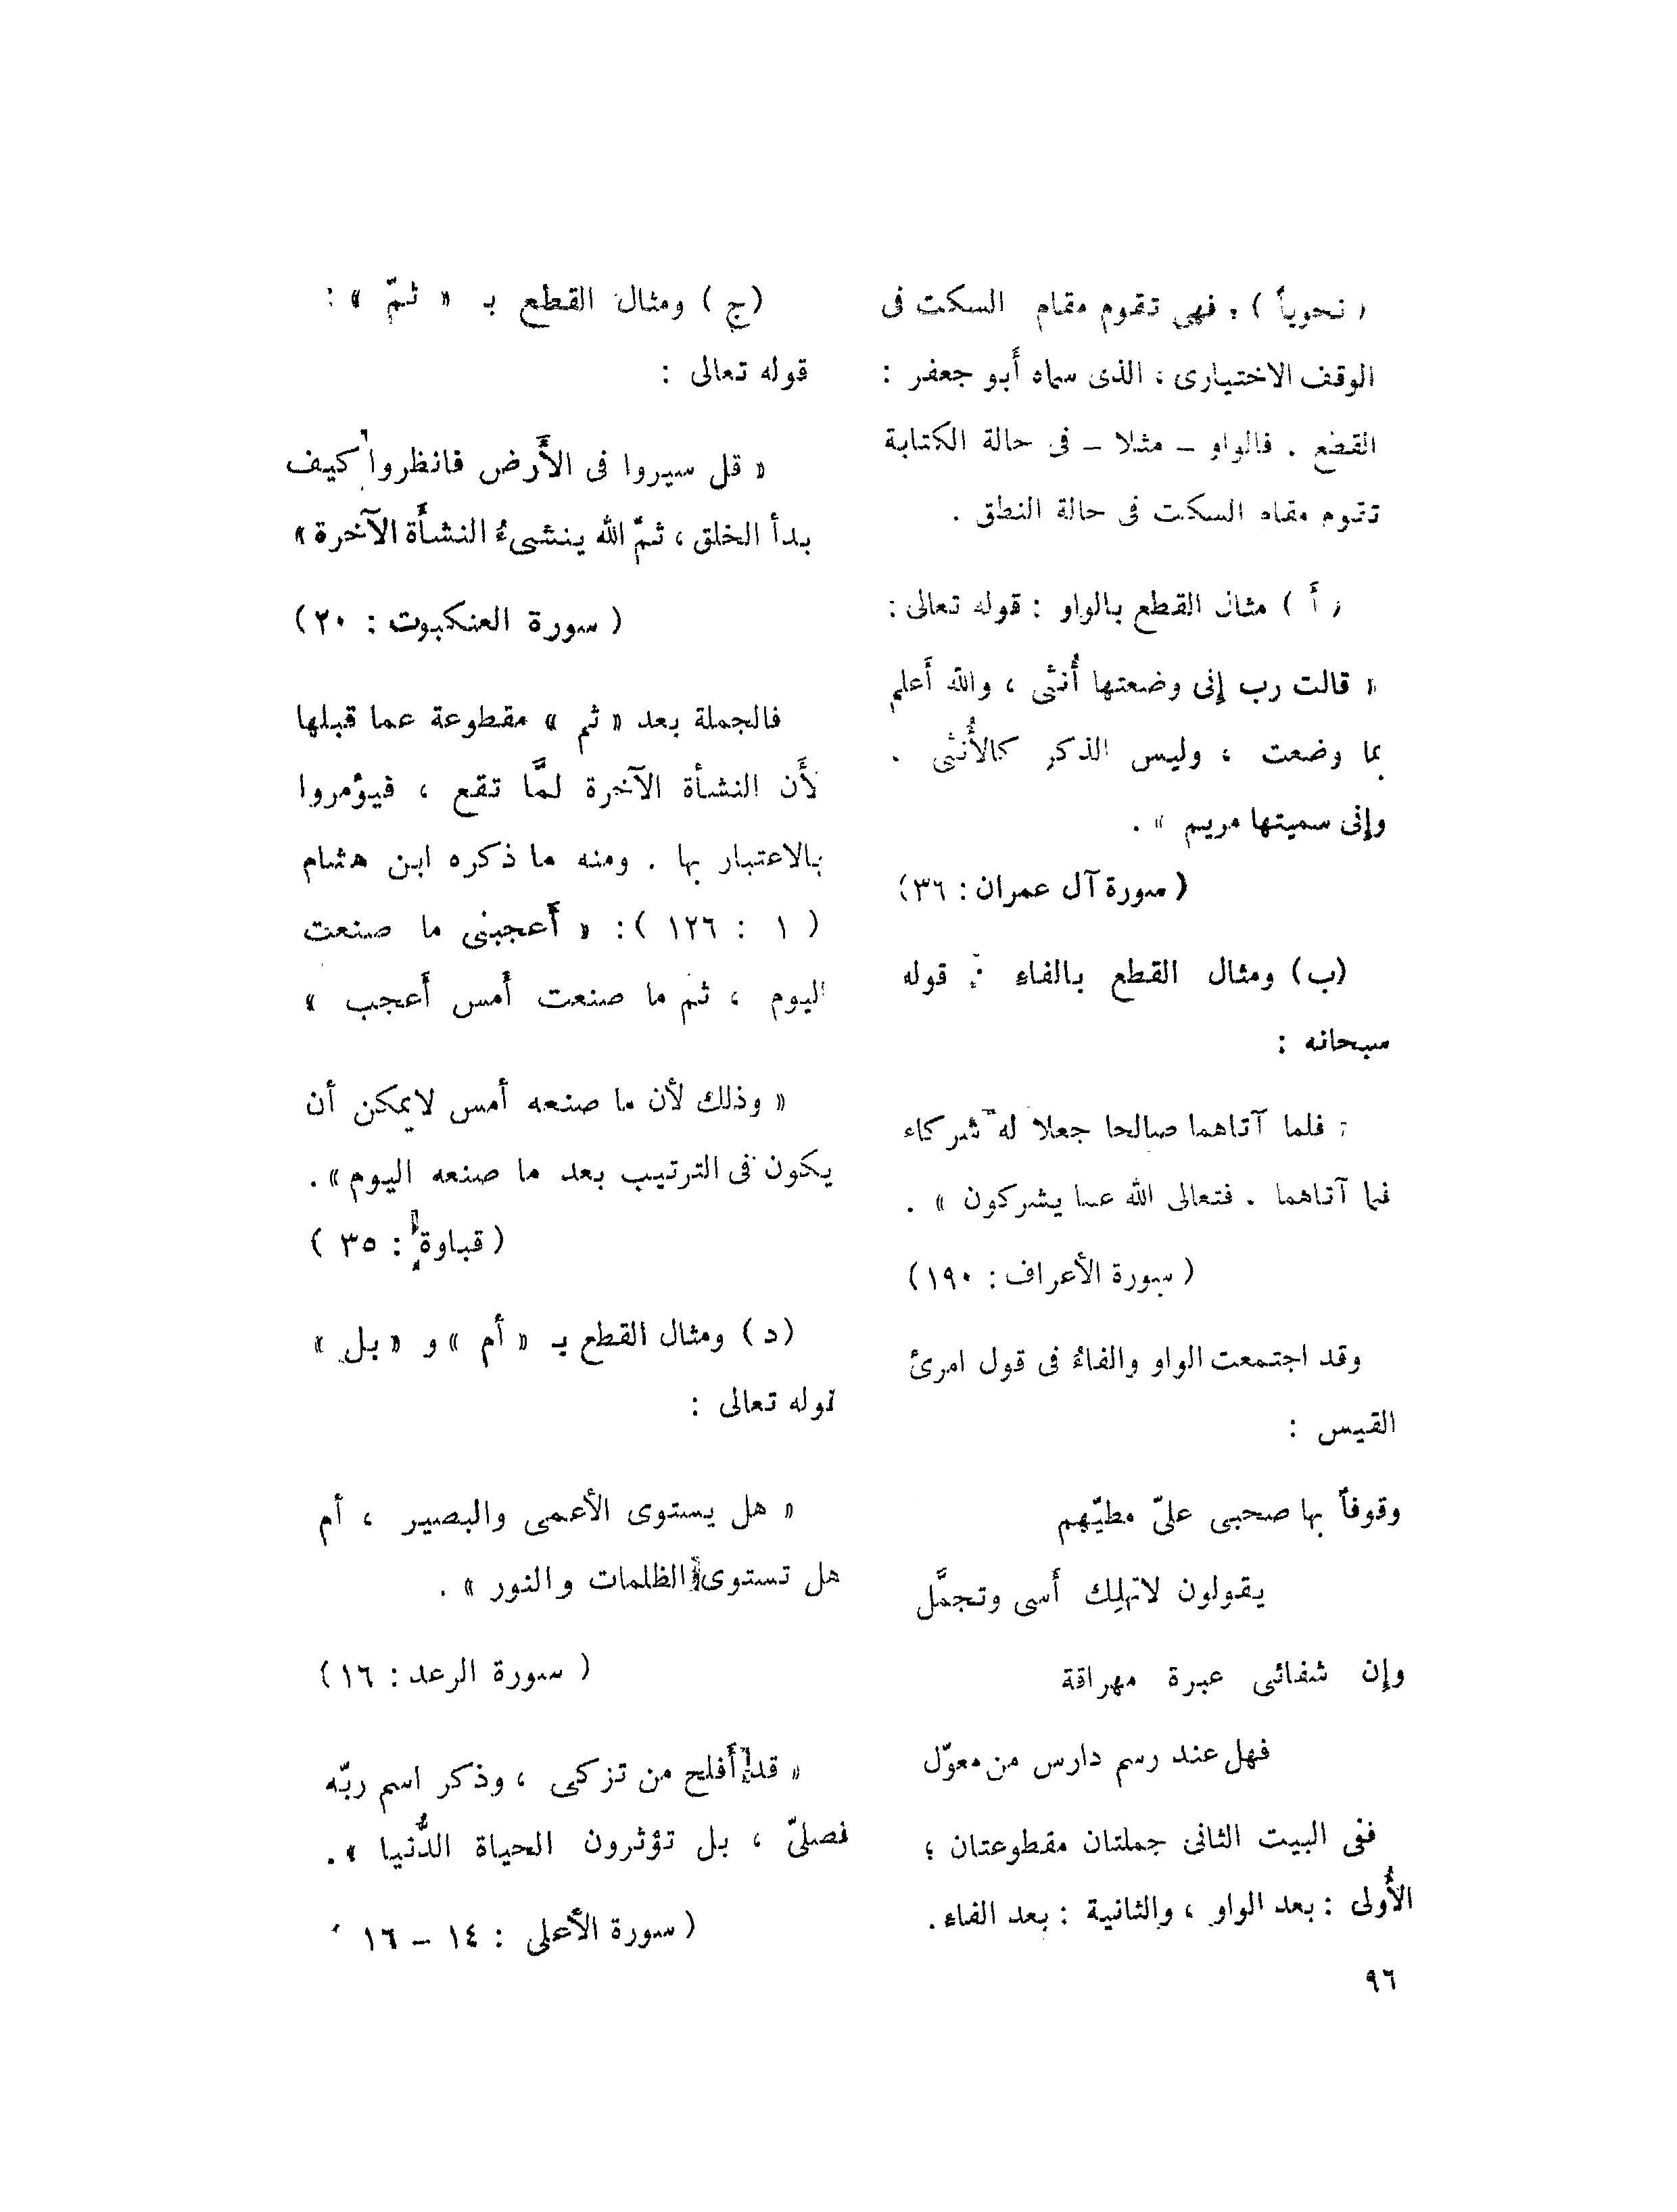 ( نحوياً ) ، فهى تقوم مقام السكت فى
الوقف الاختيارى ، الذى سماه أَبو جعفر :
القطع . فالواو – مثلا – فى حالة الكتابة
تقوم مقام السكت فى حالة النطق .
( أَ ) مثال القطع بالواو : قوله تعالى :
« قالت رب إنى وضعتها أُنثى ، والله أَعلم
بما وضعت ، وليس الذكر كالأُنثى .
وإنى سميتها مريم » .
( سورة آل عمران : ٣٦)
(ب) ومثال القطع بالفاء : قوله
سبحانه :
« فلما آتاهما صالحا جعلا له شركاء
فيما آتاهما . فتعالى الله عما يشركون » .
( سورة الأعراف : ١٩٠)
وقد اجتمعت الواو والفاءُ فى قول امرئ
القيس :
وقوفاً بها صحبى علىّ مطيّهم
يقولون لاتهلِك أَسى وتجمَّل
وإن شفائى عبرة مهراقة
فهل عند رسم دارس من معوّل
ففى البيت الثانى جملتان مقطوعتان ؛
الأُولى : بعد الواو ، والثانية : بعد الفاء .
٩٦
(ج) ومثال القطع بـ « ثمّ » :
قوله تعالى :
« قل سيروا فى الأَرض فانظروا كيف
بدأ الخلق ، ثمّ الله ينشىءُ النشأَة الآخرة »
( سورة العنكبوت : ٢٠)
فالجملة بعد « ثم » مقطوعة عما قبلها
لأَن النشأة الآخرة لمَّا تقع ، فيؤمروا
بالاعتبار بها . ومنه ما ذكره ابن هشام
( ١ : ١٢٦ ) : « أَعجبنى ما صنعت
اليوم ، ثم ما صنعت أَمس أَعجب »
« وذلك لأن ما صنعه أمس لايمكن أن
يكون فى الترتيب بعد ما صنعه اليوم » .
( قباوة : ٣٥ )
(د) ومثال القطع بـ « أم » و « بل »
قوله تعالى :
« هل يستوى الأعمى والبصير ، أم
هل تستوى الظلمات والنور » .
( سورة الرعد : ١٦)
« قد أَفلح من تزكى ، وذكر اسم ربّه
فصلىّ ، بل تؤثرون الحياة الدُّنيا » .
( سورة الأعلى : ١٤ – ١٦